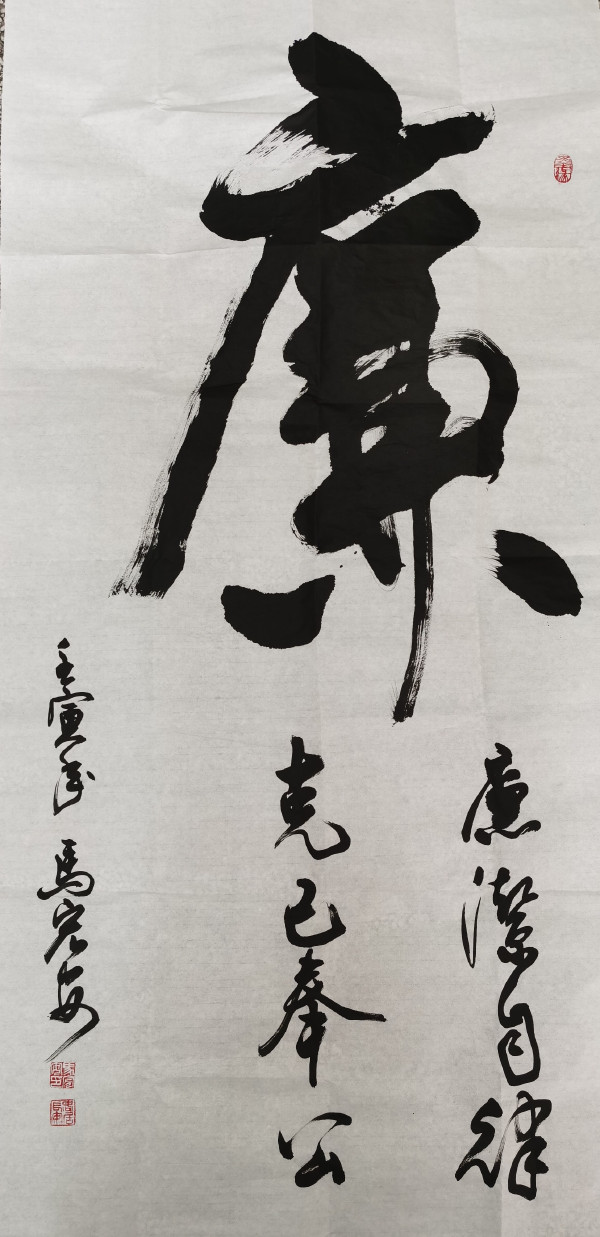 廉
廉潔自律
克己奉公
壬寅年 馬宏安